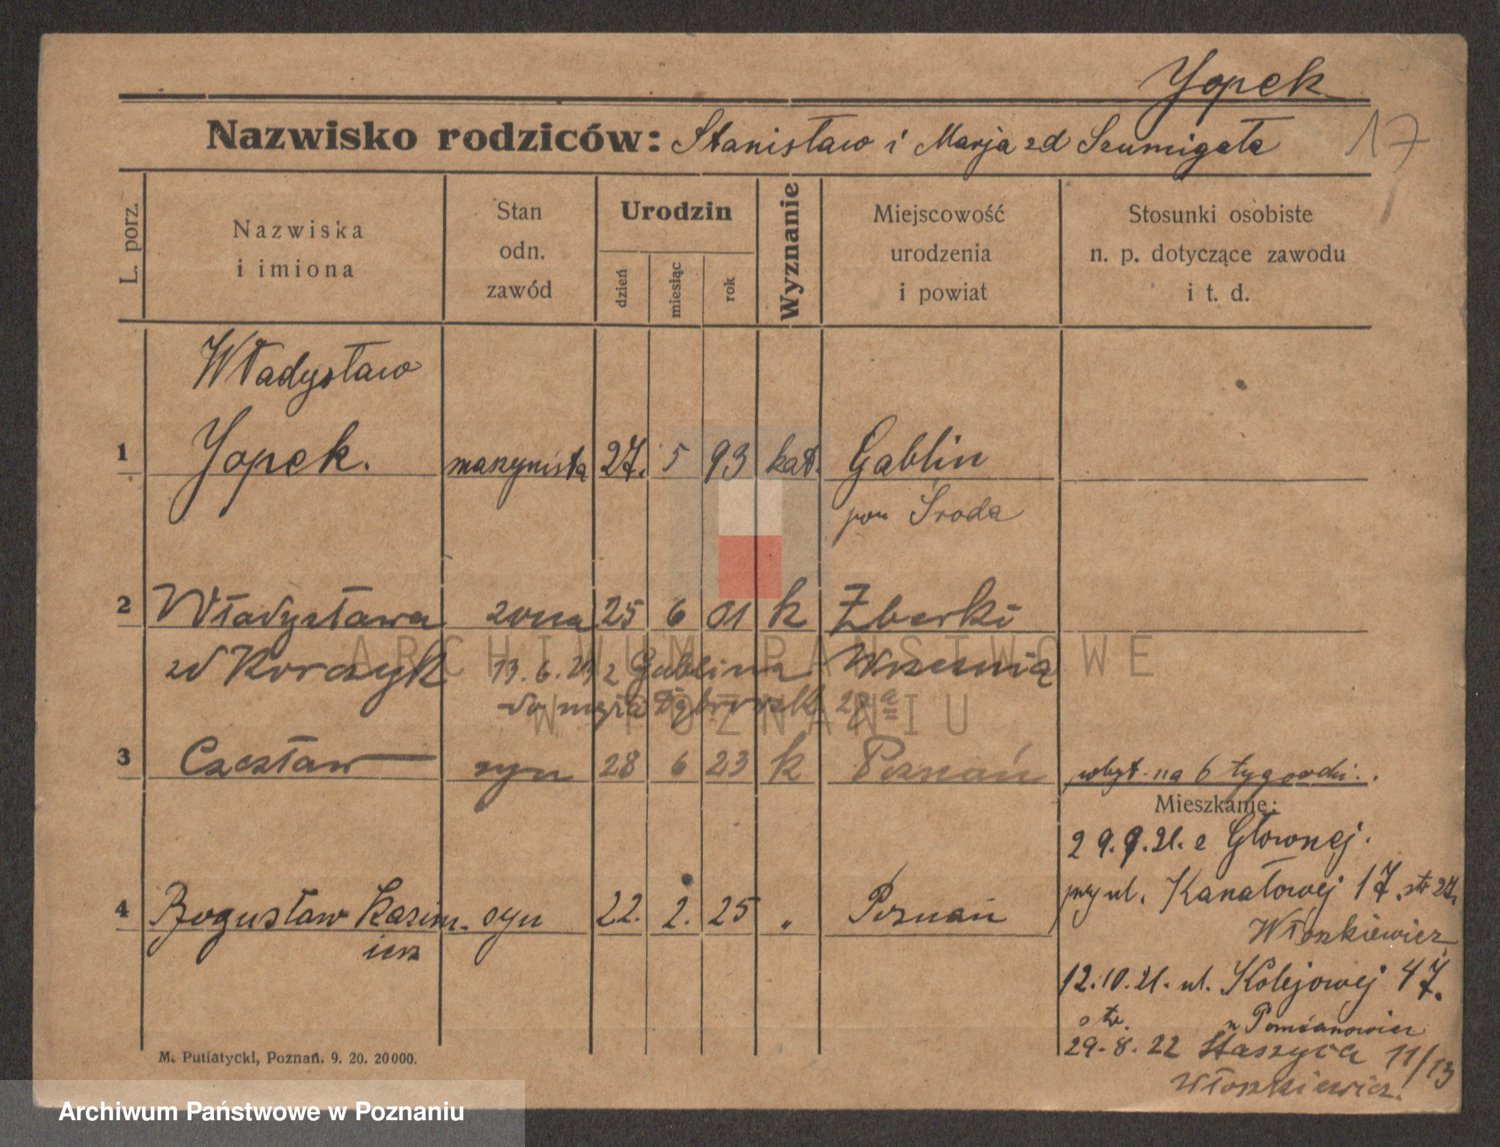 Yopek
Nazwisko rodziców: Stanisław i Marja zd Szumigała
17
L. porz.
Nazwiska i imiona
Stan odn. zawód
Urodzin
dzień
miesiąc
rok
Wyznanie
Miejscowość urodzenia i powiat
Stosunki osobiste n. p. dotyczące zawodu i t. d.
Władysław
1 Yopek. maszynista 27. 5 93 kat. Gablin
pow Środa
2 Władysława żona 25 6 01 k Zberki
zd Korczyk 13.6. z Gablina Wrześnią
do męża
3 Czesław syn 28 6 23 k Poznań pobyt na 6 tygodni.
Mieszkanie:
29.9.21. z Głównej.
4 Bogusław Kazim- syn 22. 2. 25 " Poznań
ierz
przy ul. Kanałowej 17. str 27.
Włoszkiewicz
12.10.21. ul. Kolejowej 47.
str.
29.8.22 Staszyca 11/13
Włoszkiewicz.
M. Putiatycki, Poznań. 9. 20. 20000.
ARCHIWUM PAŃSTWOWE
W POZNANIU
Archiwum Państwowe w Poznaniu